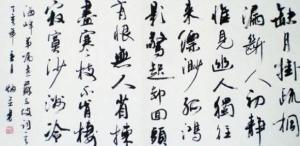 缺月掛疏桐
漏斷人初靜
惟見幽人獨往
來縹緲孤鴻
影驚起却回頭
有恨無人省揀
盡寒枝不肯棲
寂寞沙洲冷